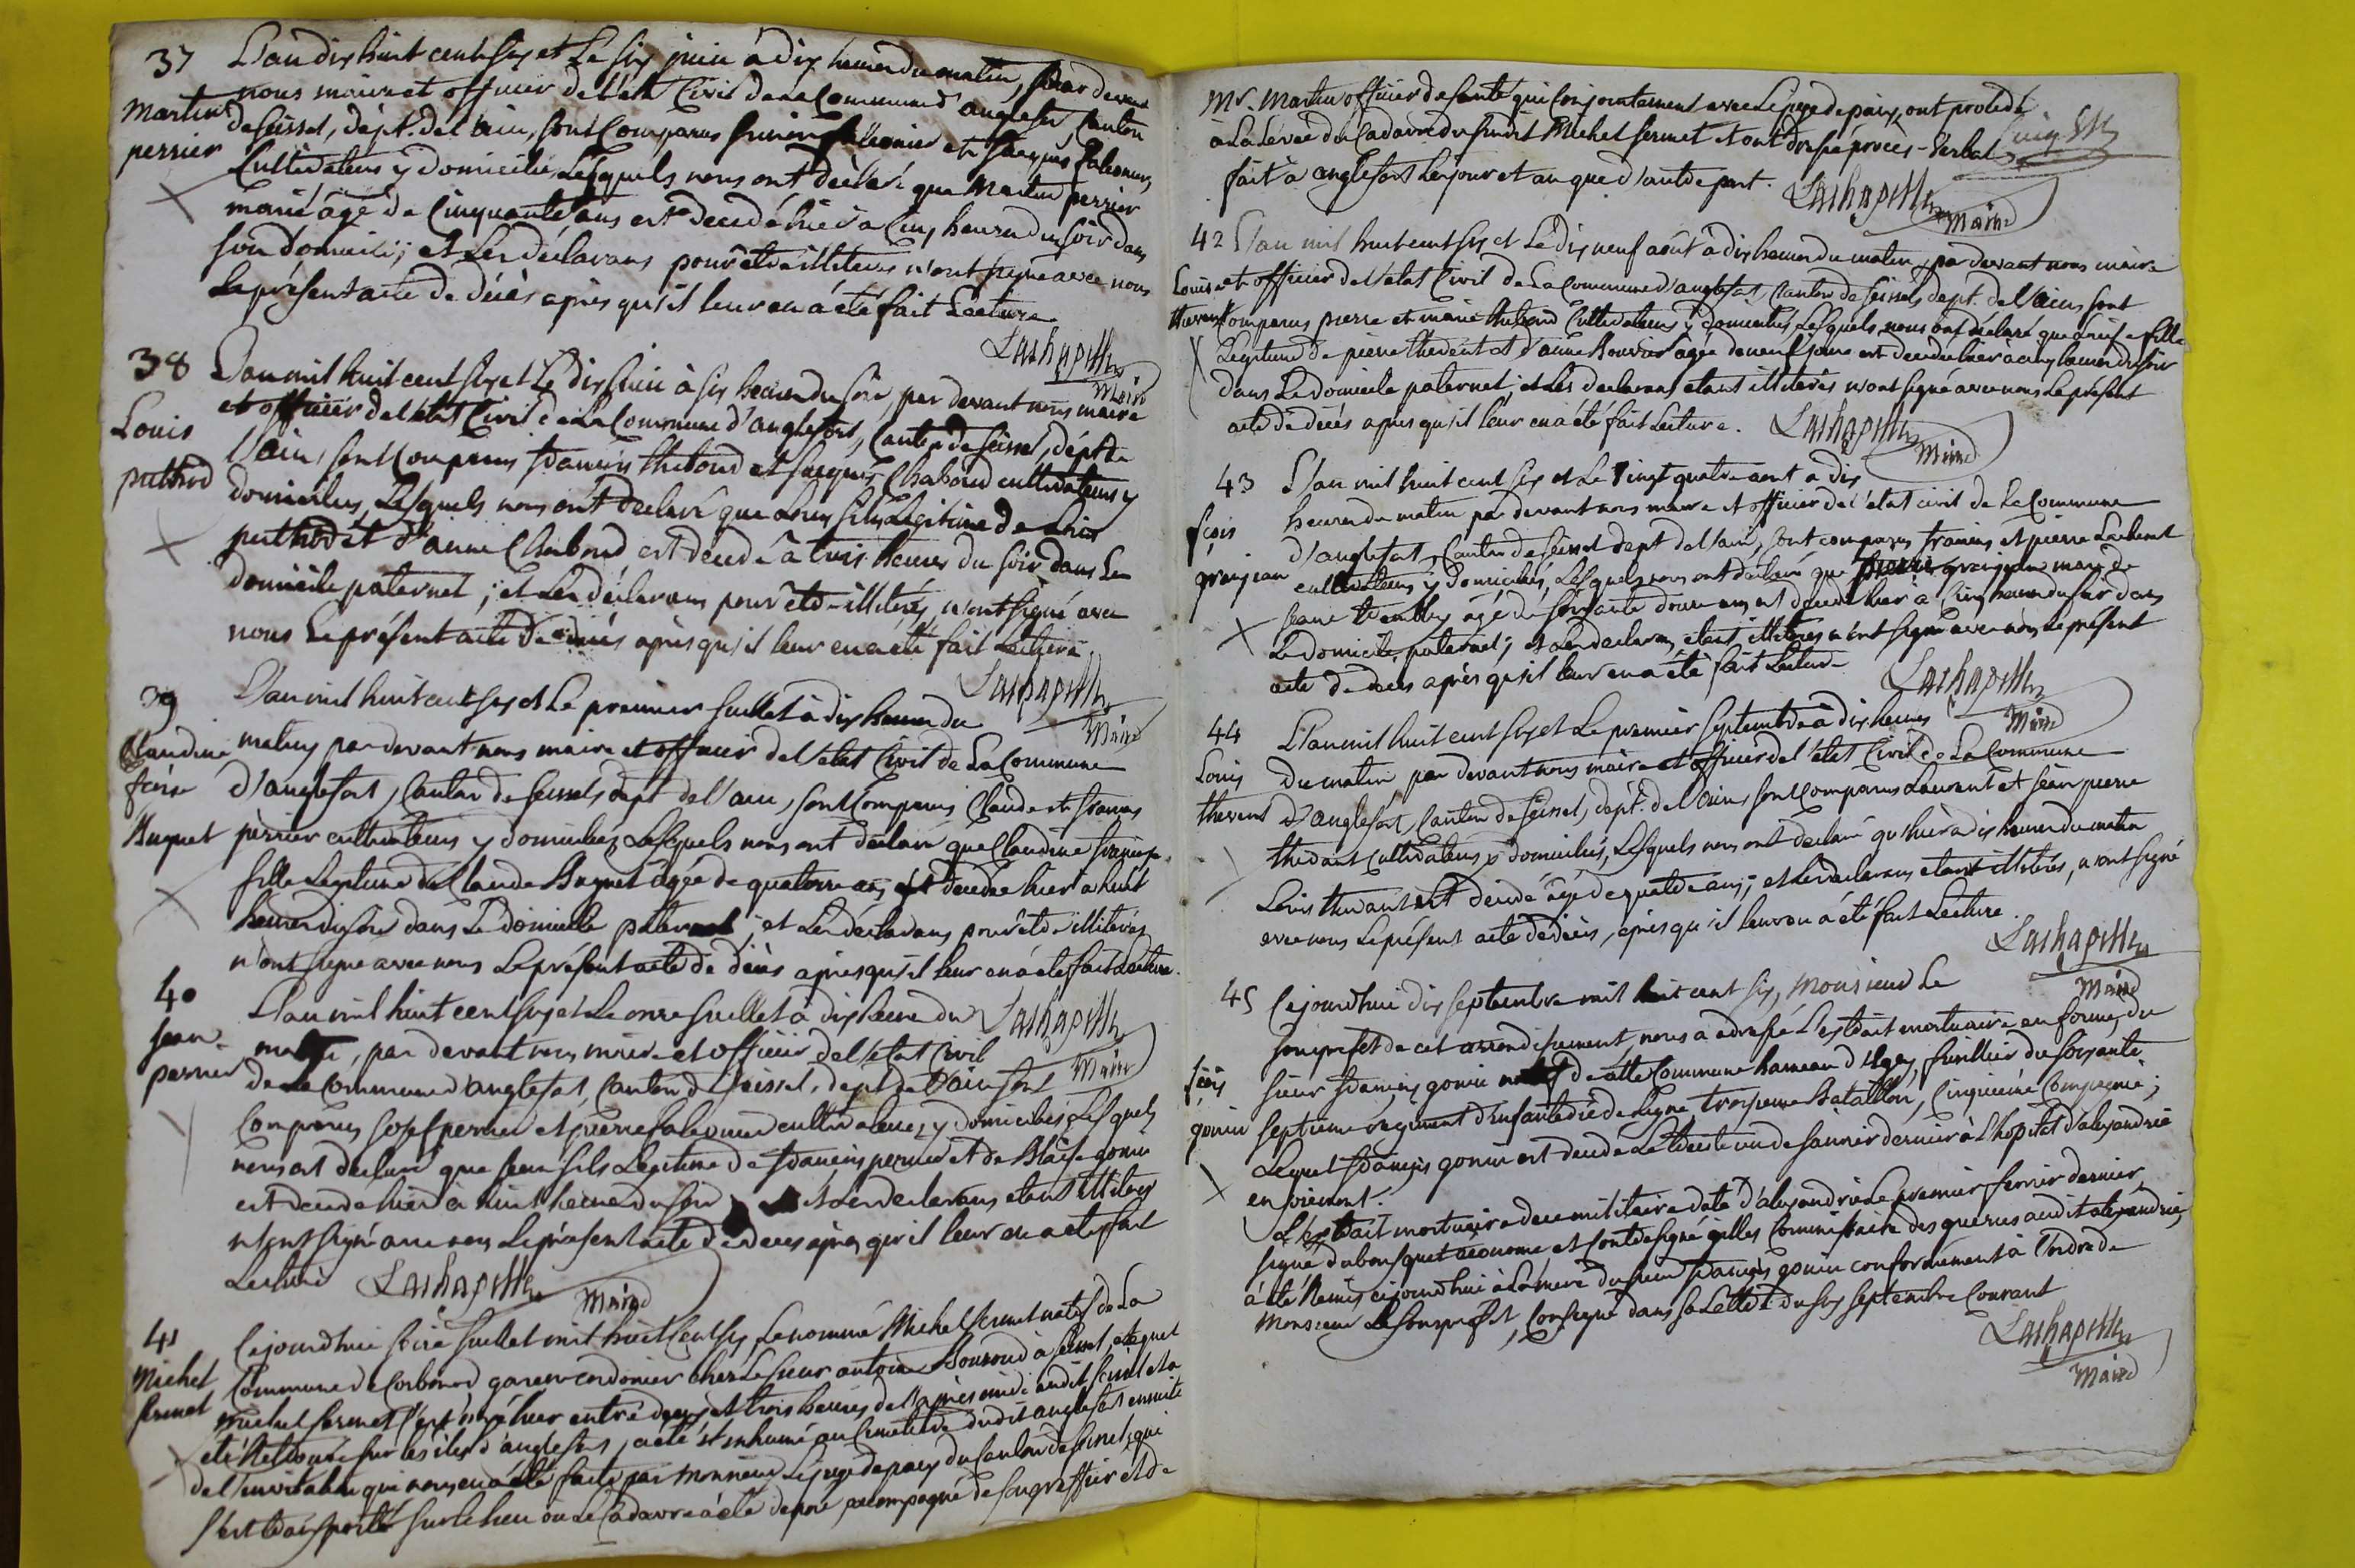 37
Martin
perrier
L'an dix huit cent six et Le six juin à dix heures du matin, pardevant
nous maire et officier de l'état Civil de la Commune d'anglefort, Canton
de seissel, dépt. de l'ain, sont Comparus et Jacques falconnier
Cultivateurs y domiciliés, Lesquels nous ont déclaré que Martin perrier
marié âgé de Cinquante ans est décédé hier à Cinq heures du soir dans
son domicile; et Les déclarans pour être illiteres n'ont signé avec nous
Le présent acte de décès après qu'il leur en a été fait Lecture
Lachapelle
Maire
38
Louis
puthod
L'an mil huit cent six et Le dix Juin à six heures du soir, par devant nous maire
et officier de l'état Civil de La Commune d'anglefort, Canton de seissel, dépt de
l'ain, sont Comparus francois thiboud et Jacques Chaboud cultivateurs y
domiciliés, Lesquels nous ont déclaré que Louis fils Légitime de Louis
puthod et d'anne Chaboud est décédé à trois heures du soir dans Le
domicile paternel; et Les déclarans pour être illiterés, n'ont signé avec
nous Le présent acte de décès après qu'il leur en a été fait Lecture.
Lachapelle
Maire
39
Claudine
foise
Huguet
L'an mil huit cent six et Le premier Juillet à dix heures du
matin, par devant nous maire et officier de l'etat Civil de La Commune
d'anglefort, Canton de seissel, dept de l'ain, sont Comparus Claude et francois
perrier cultivateurs y domiciliés, Lesquels nous ont déclaré que Claudine françoise
fille Légitime de Claude Huguet âgée de quatorze ans est décédée hier à huit
heures du soir dans Le domicile paternel; et Les déclarans pour être illiterés
n'ont signé avec nous Le présent acte de décès après qu'il leur en a été fait Lecture.
Lachapelle
Maire
40
Jean
pernier
L'an mil huit cent six et Le onze Juillet à dix heures du
matin, par devant nous maire et officier de l'état Civil
de La Commune d'anglefort, Canton de seissel, dept de l'ain sont
Comparus et pierre falconnier cultivateurs, y domiciliés, Lesquels
nous ont déclaré que Jean fils Légitime de francois et de Blaise gonin
est décédé hier à huit heures du soir et Les declarans étant illiterés
n'ont signé avec nous Le présent acte de deces après qu'il leur en a été fait
Lecture
Lachapelle
Maire
41
Michel
sermet
Cejourdhui seize Juillet mil huit Cent six, Le nommé Michel sermet natif de La
Commune de Corbonod garcon cordonier chez Le sieur antoine à seissel, Lequel
Michel sermet s'est noyé hier entre deux et trois heures de l'après midi audit seissel et a
été Retrouvé sur les îles d'anglefort, a été inhumé au Cimetière dudit anglefort ensuite
de l'invitation qui nous en a été faite par Monsieur Le juge de paix du Canton de seissel, qui
s'est transporté sur le lieu où Le Cadavre a été déposé accompagné de son greffier et de
Mr. Martin officier de santé qui Conjointement avec Le juge de paix, ont procédé
à La Levée du Cadavre du susdit Michel sermet et ont dressé procès-Verbal
fait à anglefort Les jour et an que d'autre part.
Lachapelle
Maire
42
Louise
thevent
L'an mil huit cent six et Le dix neuf août à dix heures du matin, par devant nous maire
et officier de l'etat Civil de La Commune d'anglefort, Canton de seissel, dept. de l'ain, sont
Comparus pierre et marie Cultivateurs y domiciliés, Lesquels nous ont déclaré que fille
Légitime de pierre thevent et d'anne âgée de neuf jours est décédée hier à cinq heures du soir
dans Le domicile paternel; et Les declarans étant illiterés n'ont signé avec nous Le présent
acte de décès après qu'il leur en a été fait Lecture.
Lachapelle
Maire
43
fçois
granjean
L'an mil huit cent six et Le Vingt quatre août à dix
heures du matin par devant nous maire et officier de l'état civil de La Commune
d'anglefort, Canton de seissel dept de l'ain, sont comparus francois et pierre
cultivateurs y domiciliés, Lesquels nous ont déclaré que granjean marié de
Jeane âgé de soixante douze ans est décédé hier à Cinq heures du soir dans
Le domicile paternel; et Les declarans étant illiterés n'ont signé avec nous Le présent
acte de deces après qu'il leur en a été fait Lecture
Lachapelle
Maire
44
Louis
thevent
L'an mil huit cent six et Le premier septembre à dix heures
du matin par devant nous maire et officier de l'état Civil de La Commune
d'anglefort, Canton de seissel, dépt. de l'ain sont Comparus Laurent et Jean pierre
Cultivateurs y domiciliés, Lesquels nous ont déclaré qu'hier à dix heures du matin
Louis est décédé âgé de quatre ans; et Les declarans étant illiterés, n'ont signé
avec nous Le présent acte de décès, après qu'il leur en a été fait Lecture.
Lachapelle
Maire
45
fçois
gonin
Cejourdhui dix septembre mil huit cent six, Monsieur Le
souprefet de cet arrondissement, nous a adressé L'extrait mortuaire en forme, du
sieur francois gonin natif de cette Commune hameau d', fusillier du soixante
septième régiment d'Infanterie de Ligne troisieme Bataillon, Cinquième Compagnie;
Lequel françois gonin est décédé Le trente un de Janvier dernier à L'hopital d'alexandrie
en piemont.
L'extrait mortuaire militaire daté d'alexandrie Le premier fevrier dernier,
signé économe et Contresigné gilles Commissaire des guerres audit alexandrie,
a été Remis cejourdhui à La mère dudit françois gonin conformément à L'ordre de
Monsieur Le souprefet, Consigné dans sa Lettre du six septembre Courant
Lachapelle
Maire